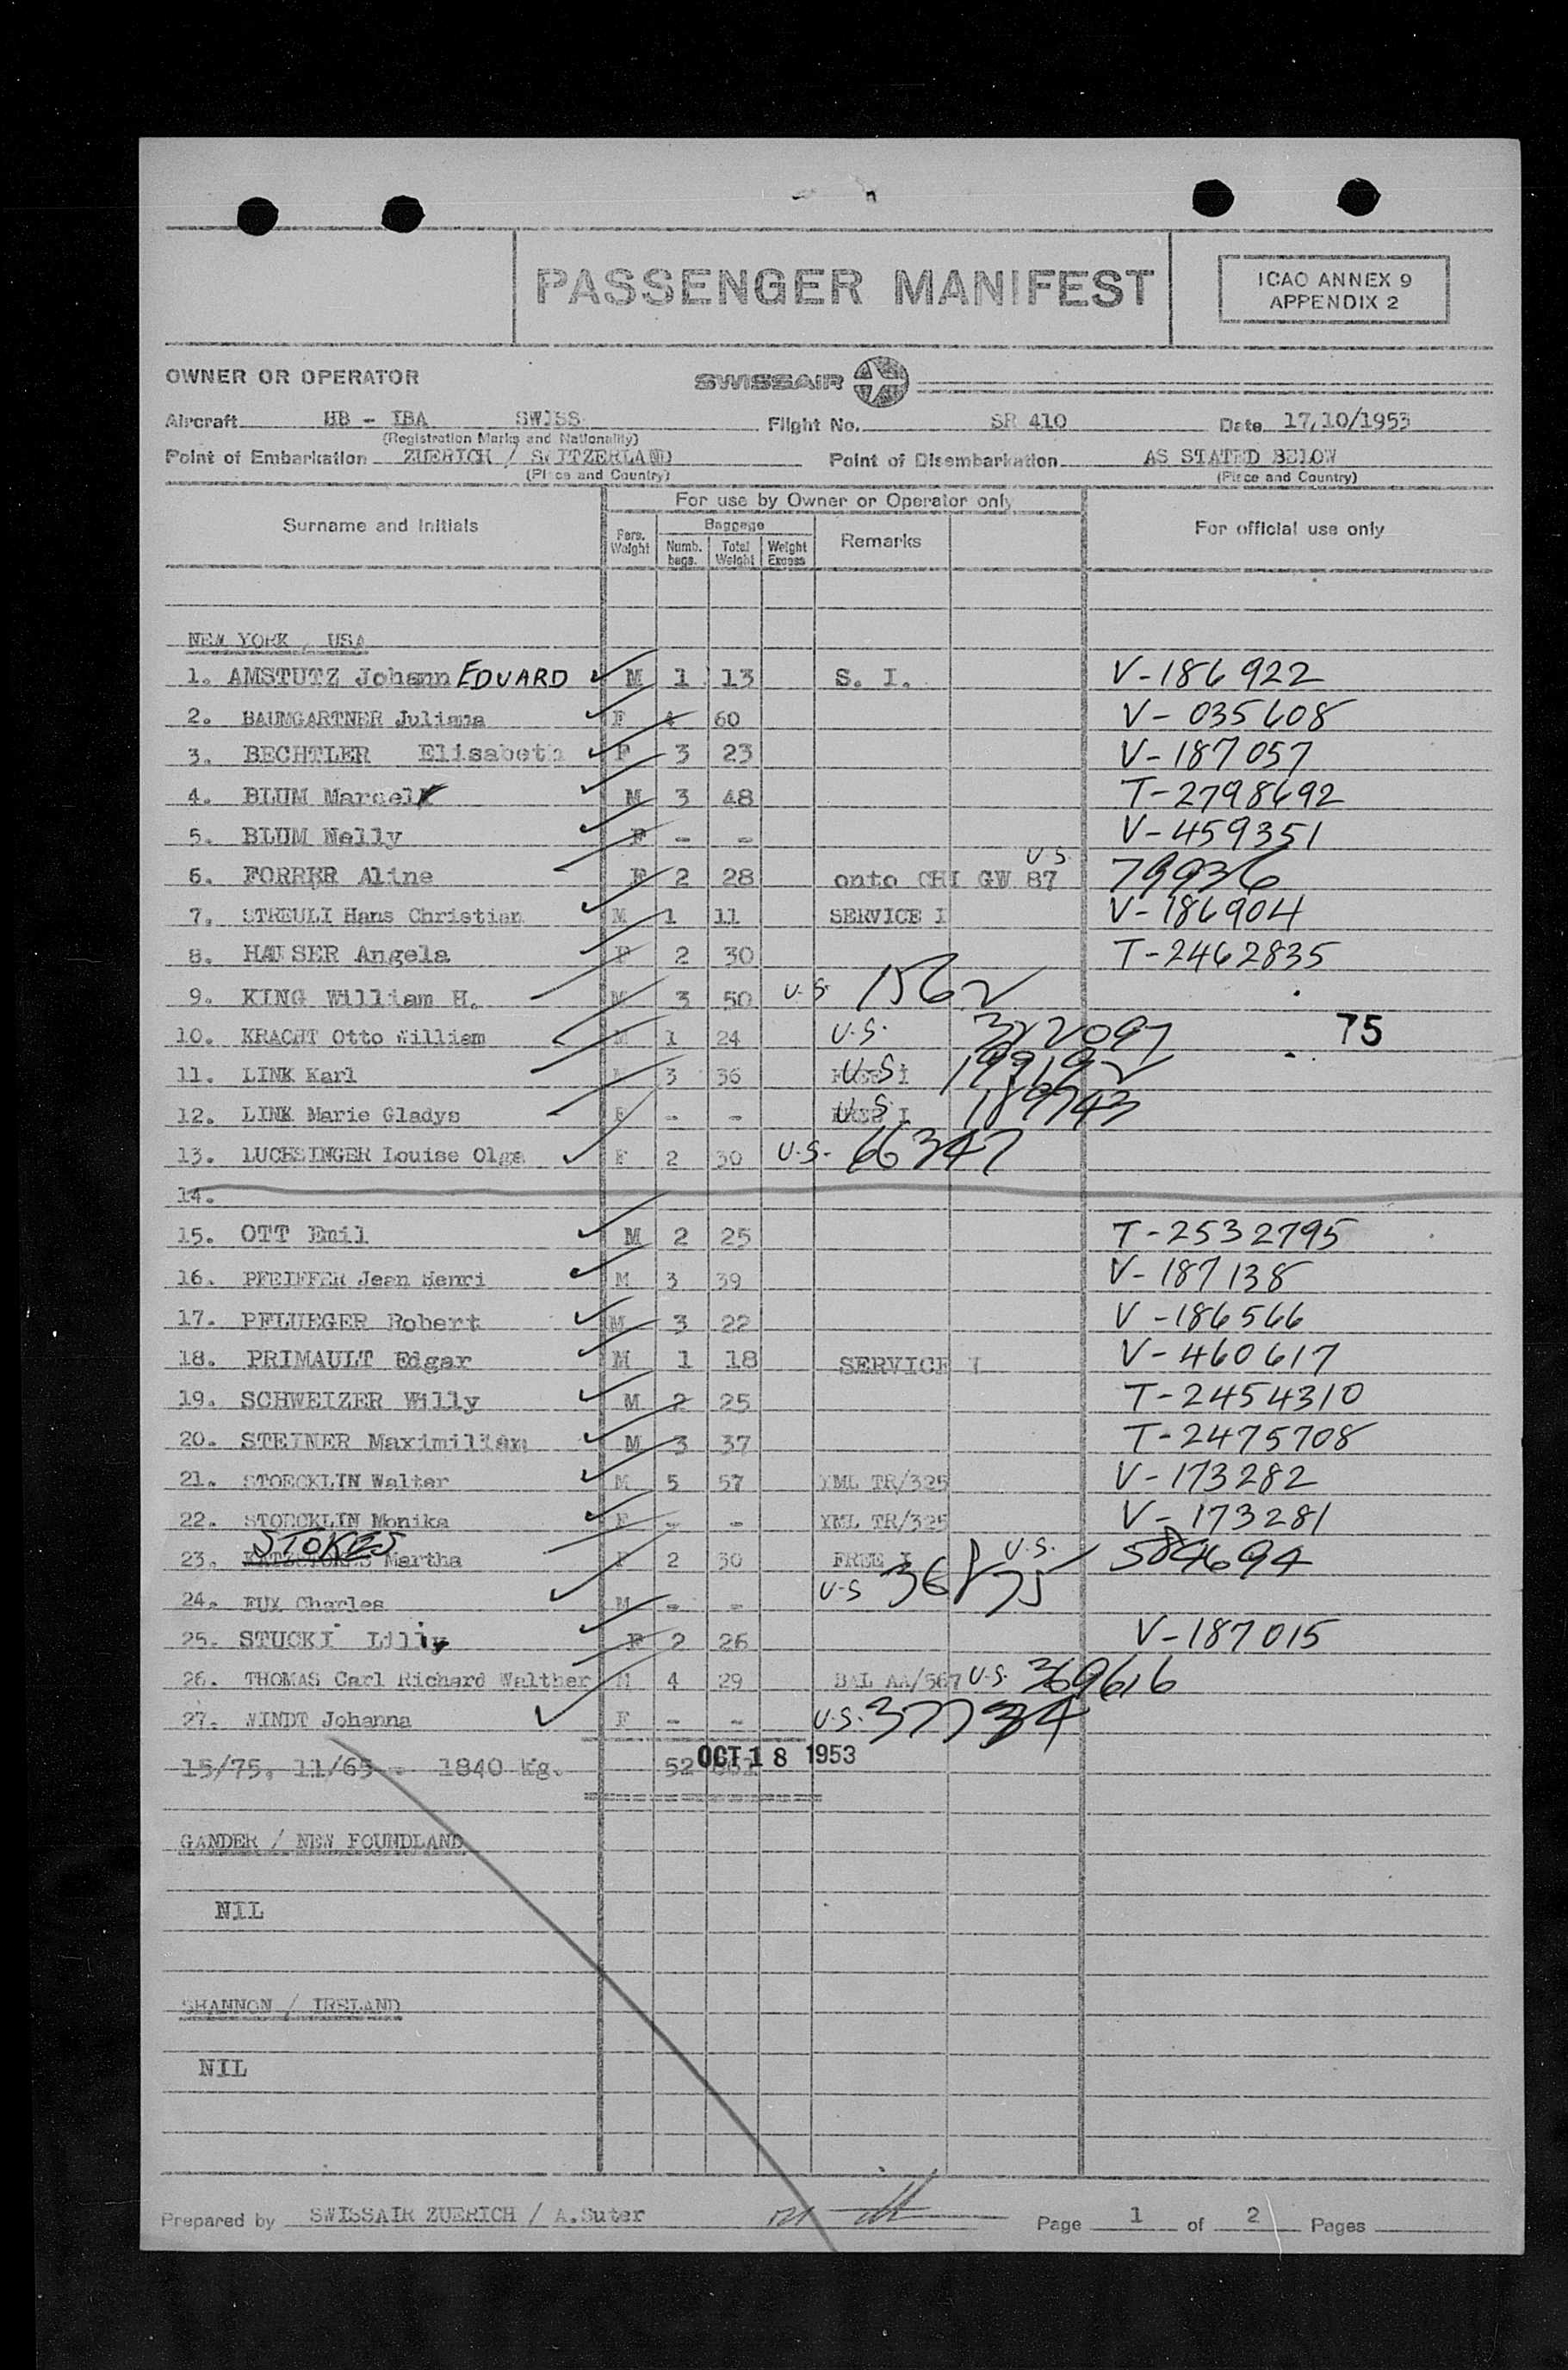 PASSENGER MANIFEST
ICAO ANNEX 9
APPENDIX 2
OWNER OR OPERATOR SWISSAIR
Aircraft HB - IBA SWISS Flight No. SR 410 Date 17,10/1953
(Registration Marks and Nationality)
Point of Embarkation ZUERICH / SWITZERLAND Point of Disembarkation AS STATED BELOW
(Place and Country) (Place and Country)
For use by Owner or Operator only
Surname and Initials Pers. Weight Baggage Numb. bags. Total Weight Weight Excess Remarks For official use only
NEW YORK / USA
1. AMSTUTZ Johann EDUARD M 1 13 S. I. V-186922
2. BAUMGARTNER Juliana F 4 60 V-035608
3. BECHTLER Elisabeth F 3 23 V-187057
4. BLUM Marcel M 3 48 T-2798692
5. BLUM Nelly F - - V-459351
6. FORRER Aline F 2 28 onto CHI GW 87 U.S. 79936
7. STREULI Hans Christian M 1 11 SERVICE I V-186904
8. HAUSER Angela F 2 30 T-2462835
9. KING William H. M 3 50 U.S. 1562
10. KRACHT Otto William M 1 24 U.S. 322097 75
11. LINK Karl 3 36 FREE I U.S.
12. LINK Marie Gladys F - - FREE I U.S.
13. LUCHSINGER Louise Olga F 2 30 U.S. 66347
14.
15. OTT Emil M 2 25 T-2532795
16. PFEIFFER Jean Henri M 3 39 V-187138
17. PFLUEGER Robert M 3 22 V-186566
18. PRIMAULT Edgar M 1 18 SERVICE I V-460617
19. SCHWEIZER Willy M 2 25 T-2454310
20. STEINER Maximilian M 3 37 T-2475708
21. STOECKLIN Walter M 5 57 YML TR/325 V-173282
22. STOECKLIN Monika F - - YML TR/325 V-173281
23. STOKES Martha F 2 30 FREE I U.S. 584694
24. FUX Charles M - - U.S
25. STUCKI Lilly F 2 26 V-187015
26. THOMAS Carl Richard Walther M 4 29 BAL AA/567 U.S. 369616
27. WINDT Johanna F - - U.S. 37734
15/75, 11/65 - 1840 kg. 52
OCT 18 1953
GANDER / NEW FOUNDLAND
NIL
SHANNON / IRELAND
NIL
Prepared by SWISSAIR ZUERICH / A.Suter Page 1 of 2 Pages